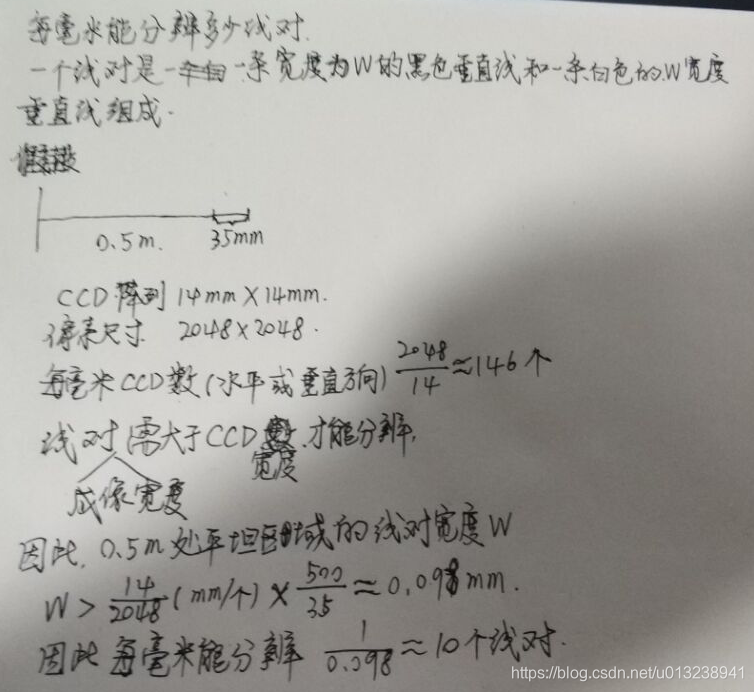 每毫米能分辨多少线对.
一个线对是一条宽度为W的黑色垂直线和一条白色的W宽度
垂直线组成.
0.5m. 35mm
CCD阵列 14mm×14mm.
像素尺寸 2048×2048.
每毫米CCD数(水平或垂直方向) 2048/14≈146个
线对需大于CCD 才能分辨,
宽度
成像宽度
因此, 0.5m处平坦区域的线对宽度W
W > 14/2048 (mm/个) × 500/35 ≈ 0.098mm.
因此每毫米能分辨 1/0.098 ≈ 10个线对.
https://blog.csdn.net/u013238941